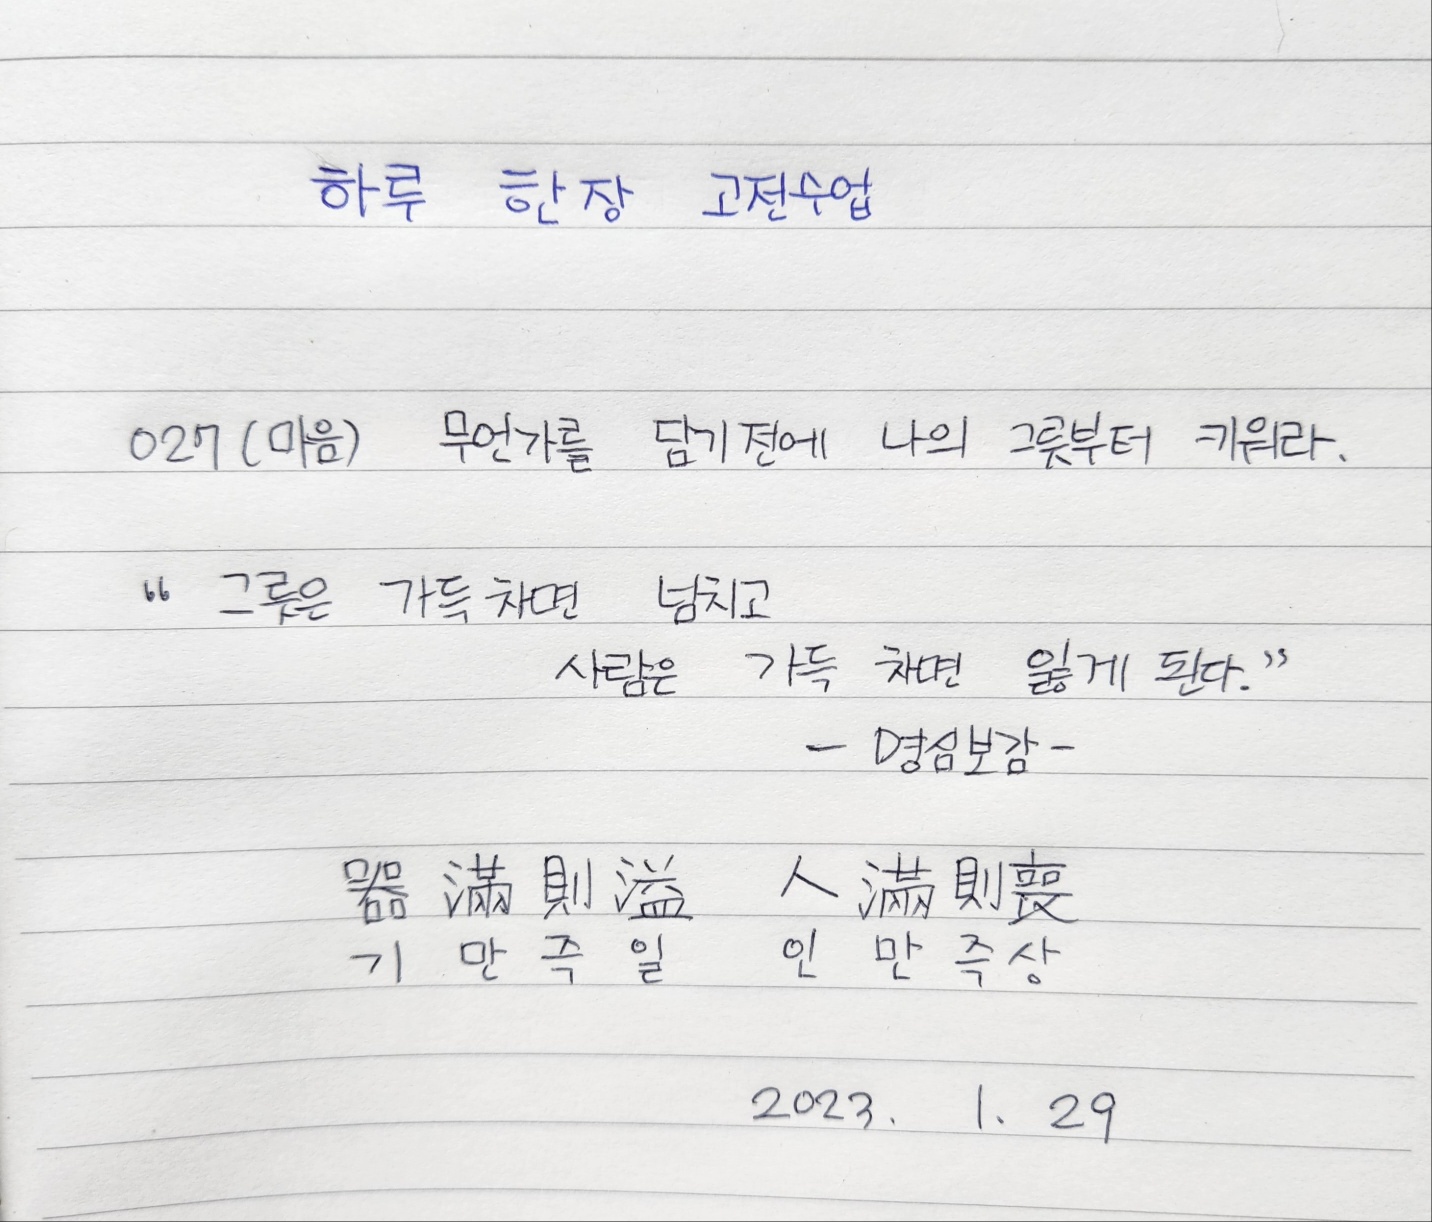 하루 한장 고전수업
027 (마음) 무언가를 담기전에 나의 그릇부터 키워라.
“ 그릇은 가득차면 넘치고
사람은 가득 차면 잃게 된다.”
- 명심보감 -
器 滿 則 溢 人 滿 則 喪
기 만 즉 일 인 만 즉 상
2023. 1. 29